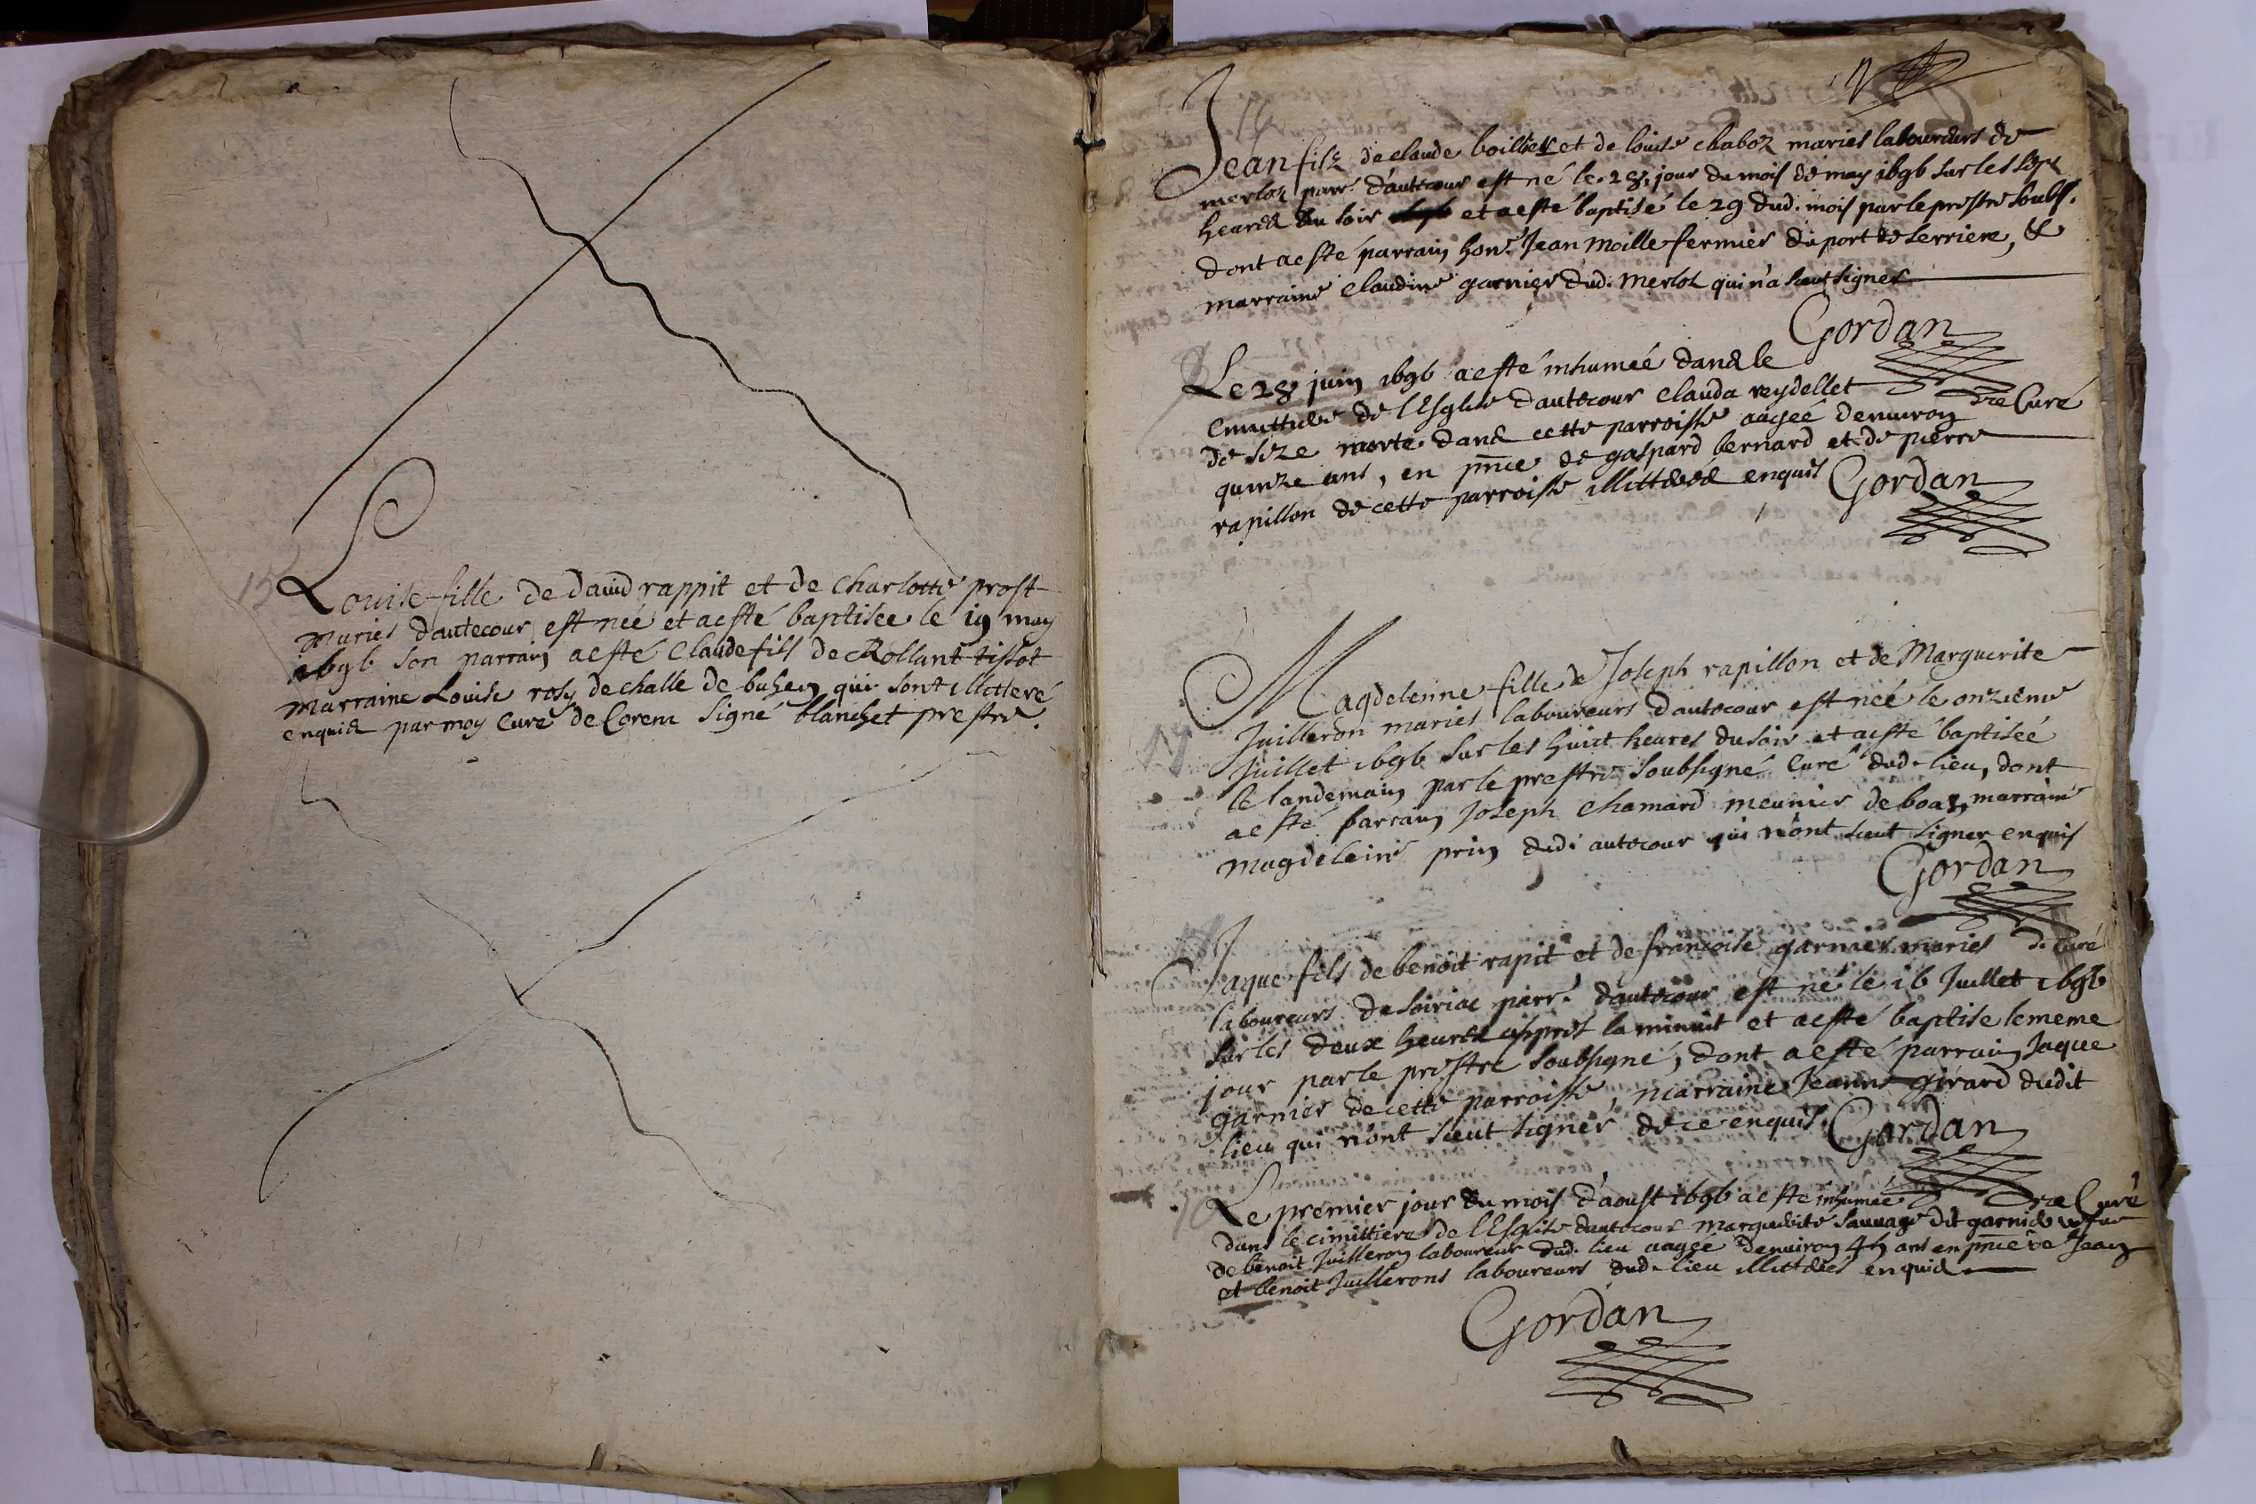 15
Louise fille de david rappit et de Charlotte prost
Mariés dautecour est née et a esté baptisée le 19 may
1696 son parrain a esté Claude fils de Rollant tissot
marraine Louise rosy de challe de buhen qui sont illitteré
enquis par moy Curé de Corent signé blanchet prestre.
16
Jean filz de claude boillier et de louise chaboz mariés laboureurs de
merloz parr. d'autecour est né le 28. jour du mois de may 1696 sur les sept
heures du soir et a esté baptisé le 29 dud. mois par le prestre soubs.
dont a esté parrain hon. Jean Moille fermier du port de serriere, &
marraine Claudine garnier dud. Merloz qui n'a sceut signer
Gordan
Curé
Le 28 juin 1696 a esté inhumée dans le
cimittiere de l'Esglise dautecour Clauda reydellet
de size morte dans cette parroisse aagée denviron
quinze ans, en pnce de gaspard bernard et de pierre
rapillon de cette parroisse illitterés enquis
Gordan
17
Magdeleine fille de Joseph rapillon et de Marguerite
Juilleron mariés laboureurs dautecour est née le onzieme
Juillet 1696 sur les huict heures du soir et a esté baptisée
le landemain par le prestre soubsigné Curé dud. lieu, dont
a esté parrain Joseph Chamard meunier de marraine
magdeleine prin dudi autecour qui n'ont sceut signer enquis
Gordan
Curé
Jaque fils de benoit rapit et de francoise garnier mariés
laboureurs de soiriac parr. dautecour est né le 16 Juillet 1696
sur les deux heures appres la minuit et a esté baptise le meme
jour par le prestre soubsigné, dont a esté parrain Jaque
garnier de cette parroisse, marraine Jeanne girard dudit
lieu qui n'ont sceut signer de ce enquis.
Gordan
Curé
Le premier jour du mois d'aoust 1696 a esté inhumée
dans le cimittiere de l'Esglise dautecour marguerite sauvage dit garnier vefve
de benoit Juilleron laboureur dud. lieu aagée denviron ans en pnce de Jean
et benoit Juillerons laboureurs dud. lieu illitterés enquis
Gordan